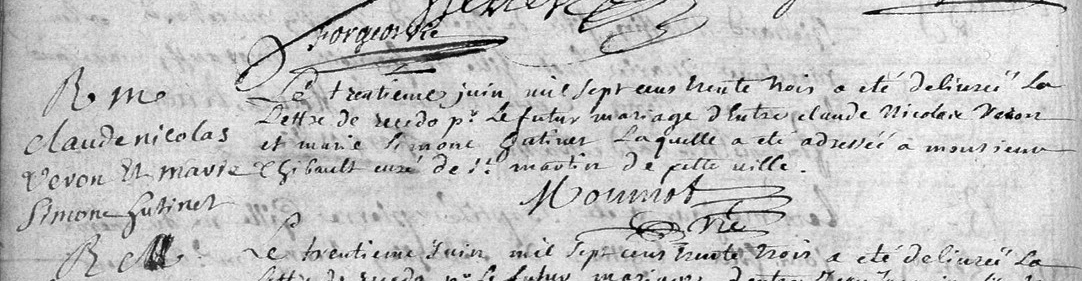 Forgeot Vic
R me
claude nicolas
Veron Et marie
Simone Gatinet
Le trentieme juin mil sept cens trente trois a eté deliureé La
Lettre de recedo pr. Le futur mariage d'Entre claude Nicolas Veron
et marie Simone Gatinet Laquelle a eté adresseé a monsieur
Thibault curé de St. martin de cette ville.
Moumot
Vic
R M
Le trentieme Juin mil sept cens trente trois a eté deliureé La
lettre de recedo pr. Le futur mariage d'entre